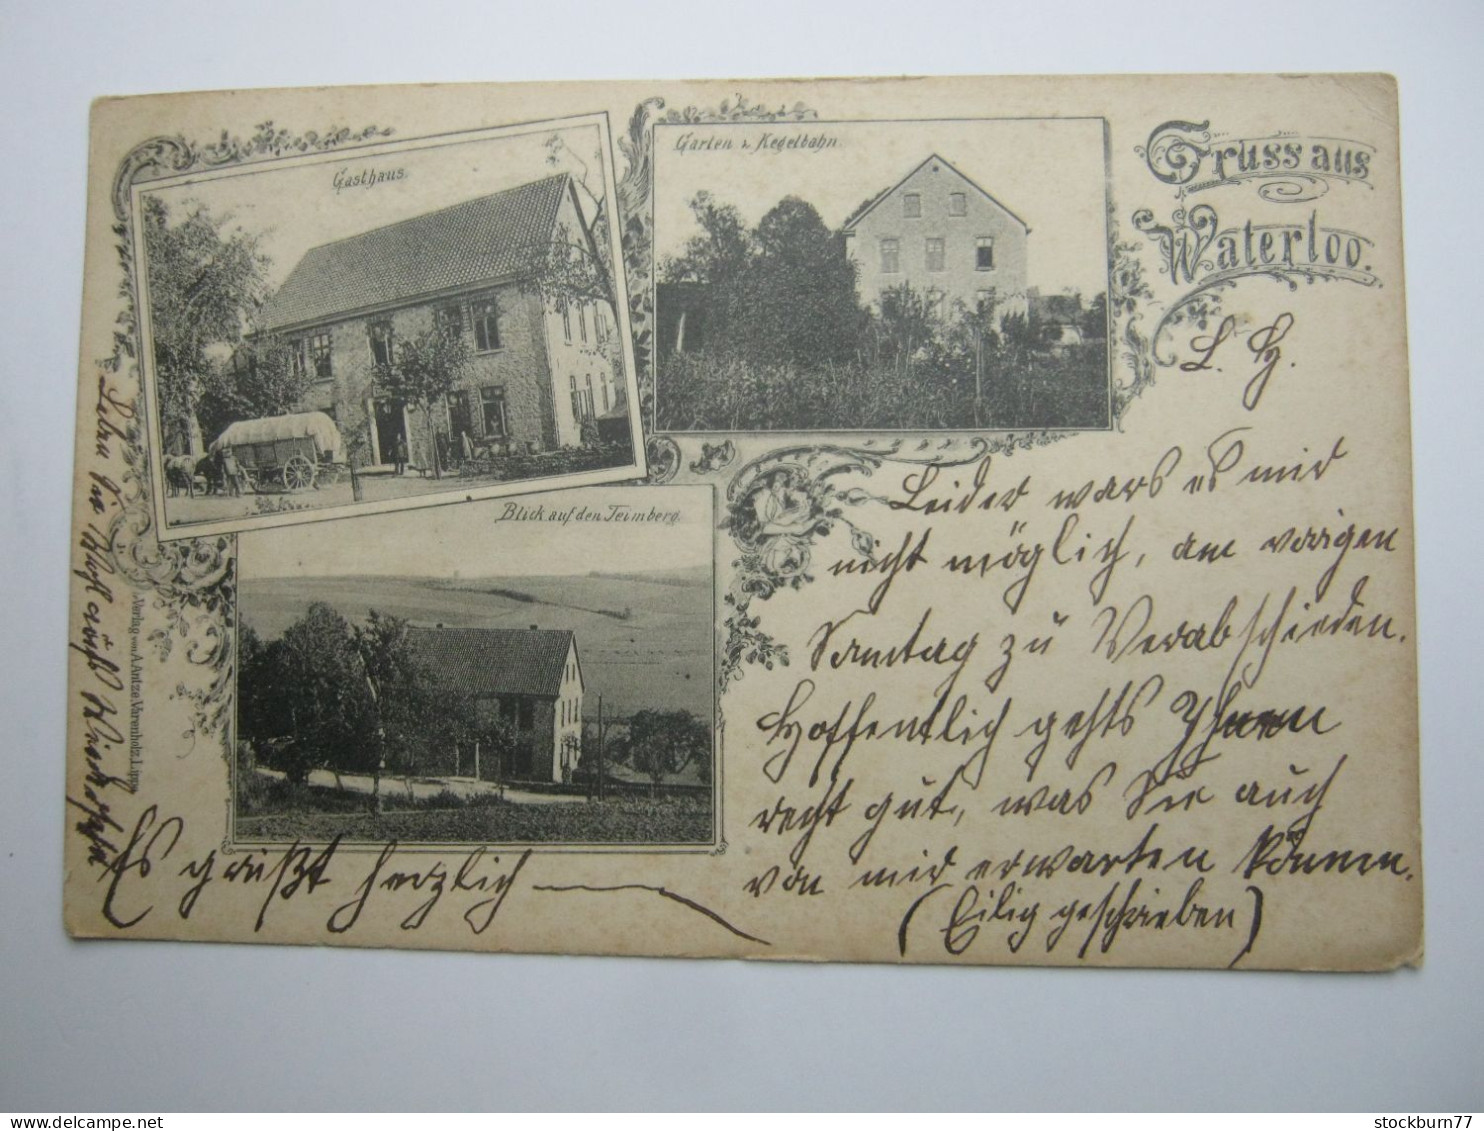 Gruss aus
Waterloo.
Gasthaus.
Garten u. Kegelbahn.
Blick auf den Teimberg.
Verlag von A. Antze Varenholz, Lippe
L. H.
Leider wars es mir
nicht möglich, am vorigen
Sonntag zu Verabschieden.
Hoffentlich gehts Ihnen
recht gut, was Sie auch
von mir erwarten können.
(Eilig geschrieben)
Es grüßt herzlich
Leben Sie Wohl auf Wiedersehn
stockburn77